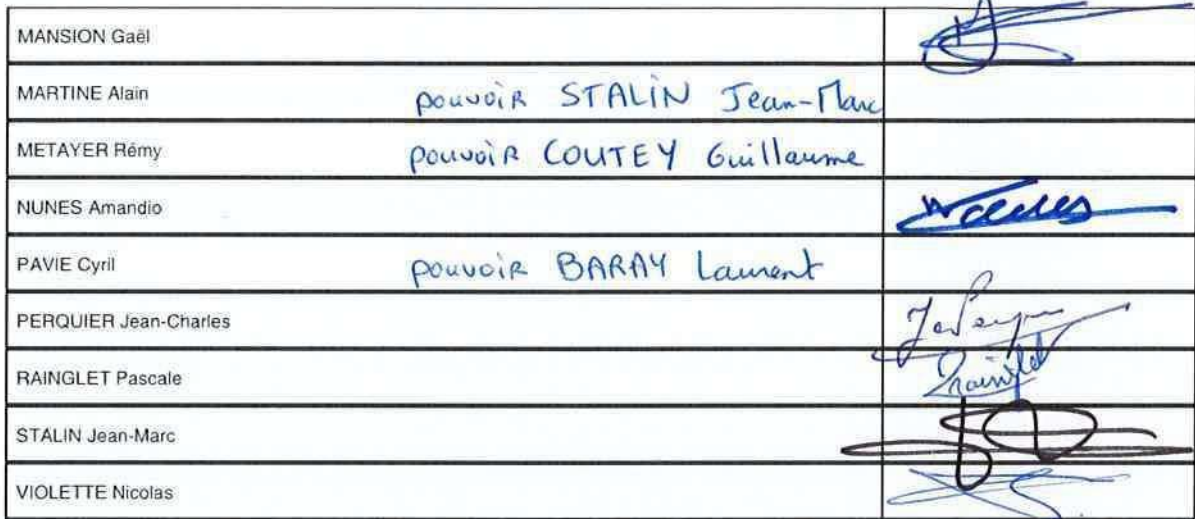 MANSION Gaël
MARTINE Alain pouvoir STALIN Jean-Marc
METAYER Rémy pouvoir COUTEY Guillaume
NUNES Amandio Nunes
PAVIE Cyril pouvoir BARAY Laurent
PERQUIER Jean-Charles
RAINGLET Pascale Rainglet
STALIN Jean-Marc
VIOLETTE Nicolas